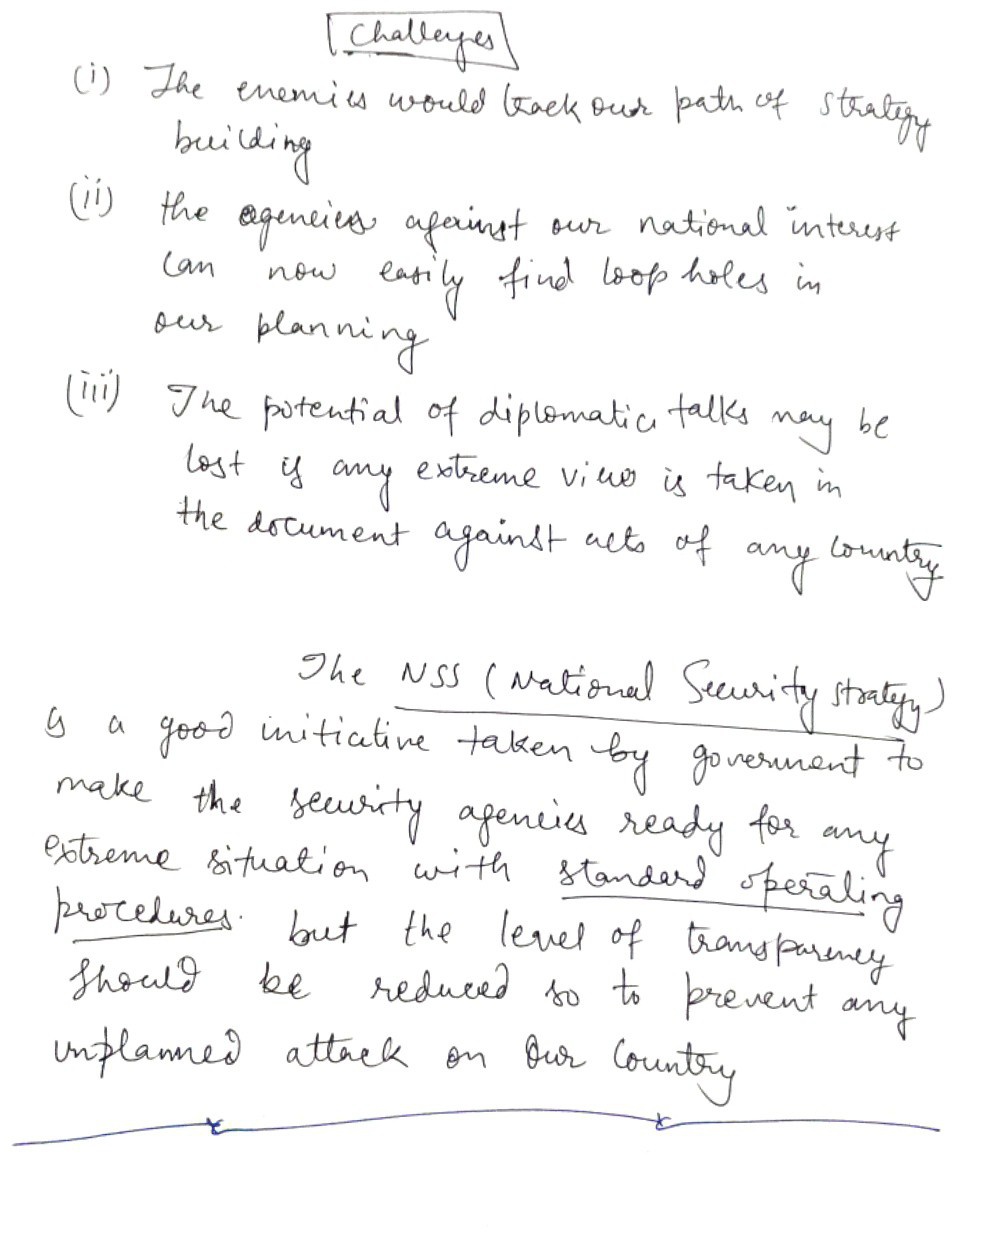 Challenges
(i) The enemies would track our path of strategy
building
(ii) the agencies against our national interest
can now easily find loop holes in
our planning
(iii) The potential of diplomatic talks may be
lost if any extreme view is taken in
the document against acts of any country
The NSS (National Security strategy)
is a good initiative taken by government to
make the security agencies ready for any
extreme situation with standard operating
procedures. but the level of transparency
should be reduced so to prevent any
unplanned attack on our country